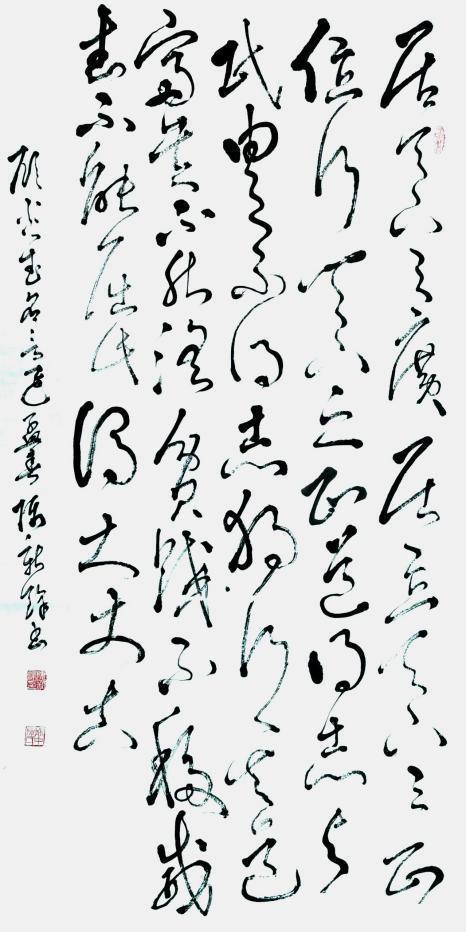 居天下之廣居立天下之正
位行天下之正道得志与
民由之不得志獨行其道
富貴不能淫貧賤不移威
武不能屈此謂大丈夫
名言
書